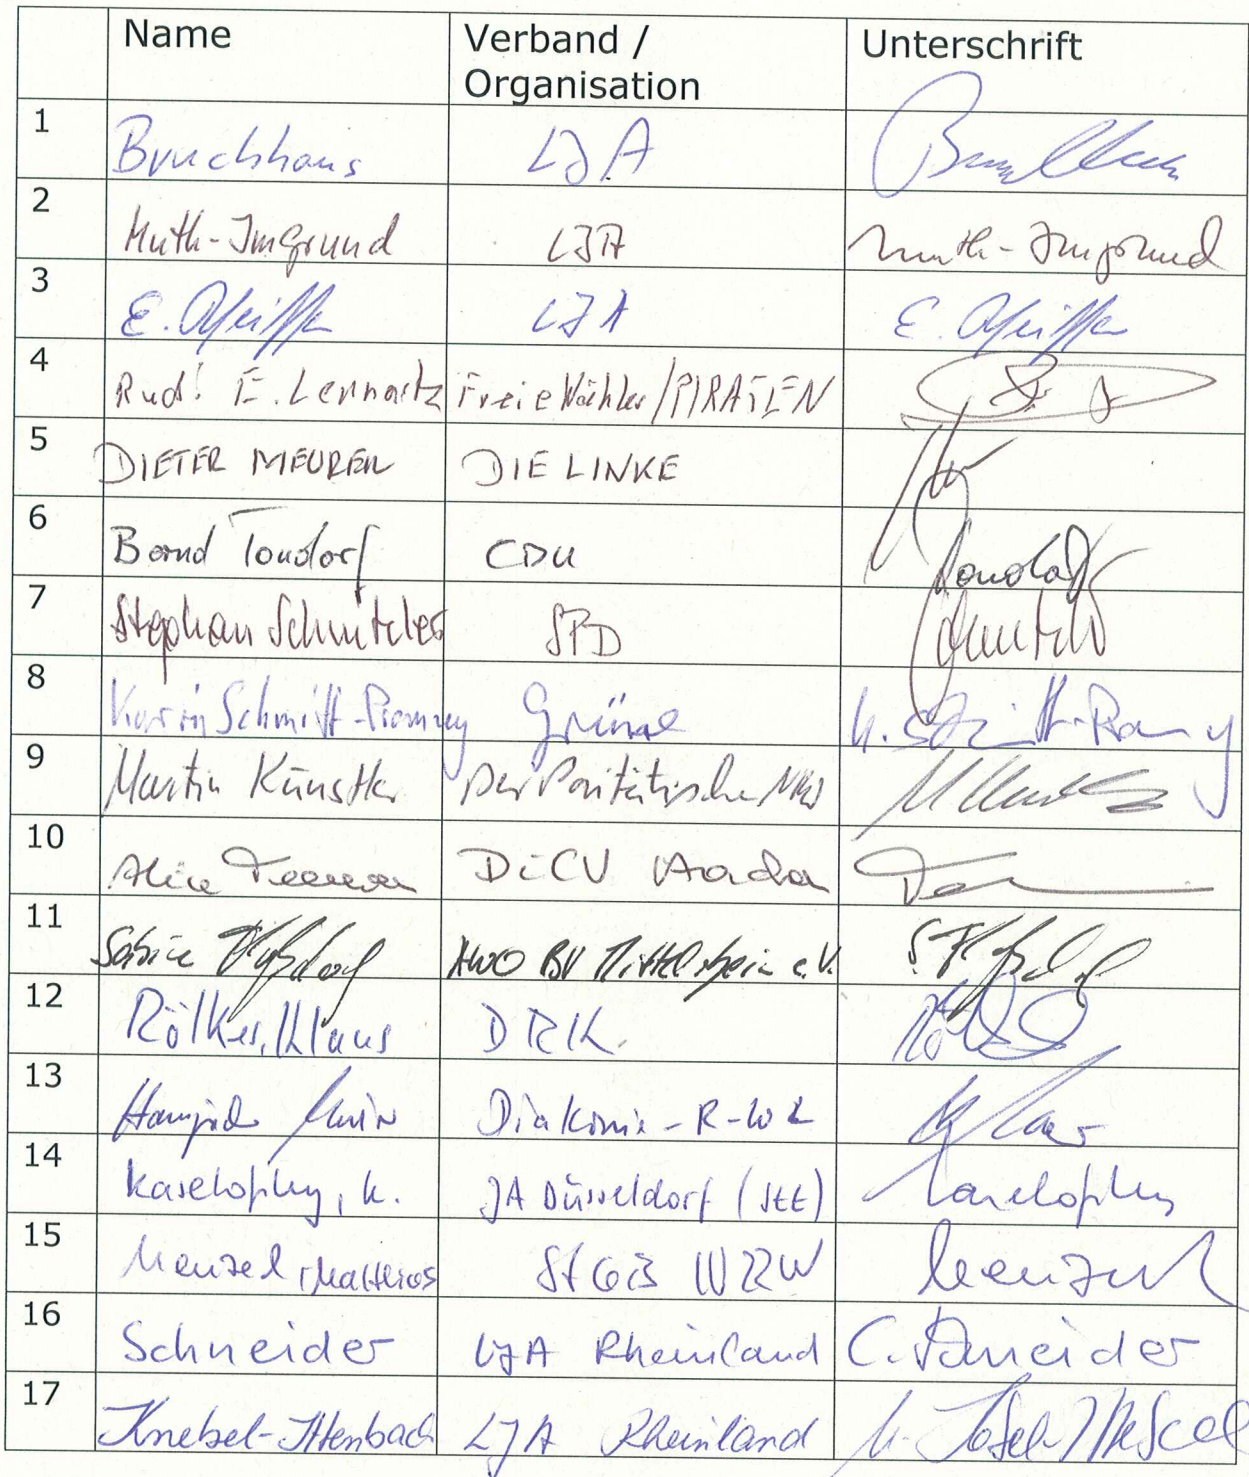 Name Verband / Organisation Unterschrift
1 Bruckhaus LJA
2 Muth-Imgrund LJA Muth-Imgrund
3 E. Pfeiffer LJA E. Pfeiffer
4 Rudi E. Lennartz Freie Wähler/PIRATEN
5 DIETER MEURER DIE LINKE
6 Bernd Tondorf CDU Tondorf
7 Stephan Schnitzler SPD
8 Karin Schmitt-Promny Grüne K. Schmitt-Promny
9 Martin Künstler Der Paritätische NRW
10 Alice DiCV Aachen
11 Sabine AWO BV Mittelrhein e.V. S.
12 Rölkes, Klaus DRK
13 Diakonie-R-W-L
14 Kaselofsky, K. JA Düsseldorf (StT) Kaselofsky
15 Menzel, Matthias StGB NRW Menzel
16 Schneider LJA Rheinland C. Schneider
17 Knebel-Ittenbach LJA Rheinland